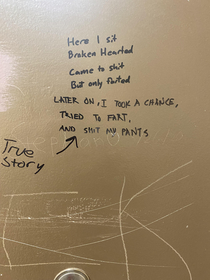 Here I sit
Broken Hearted
Came to shit
But only farted
LATER ON, I TOOK A CHANCE,
TRIED TO FART,
AND SHIT MY PANTS
True
Story